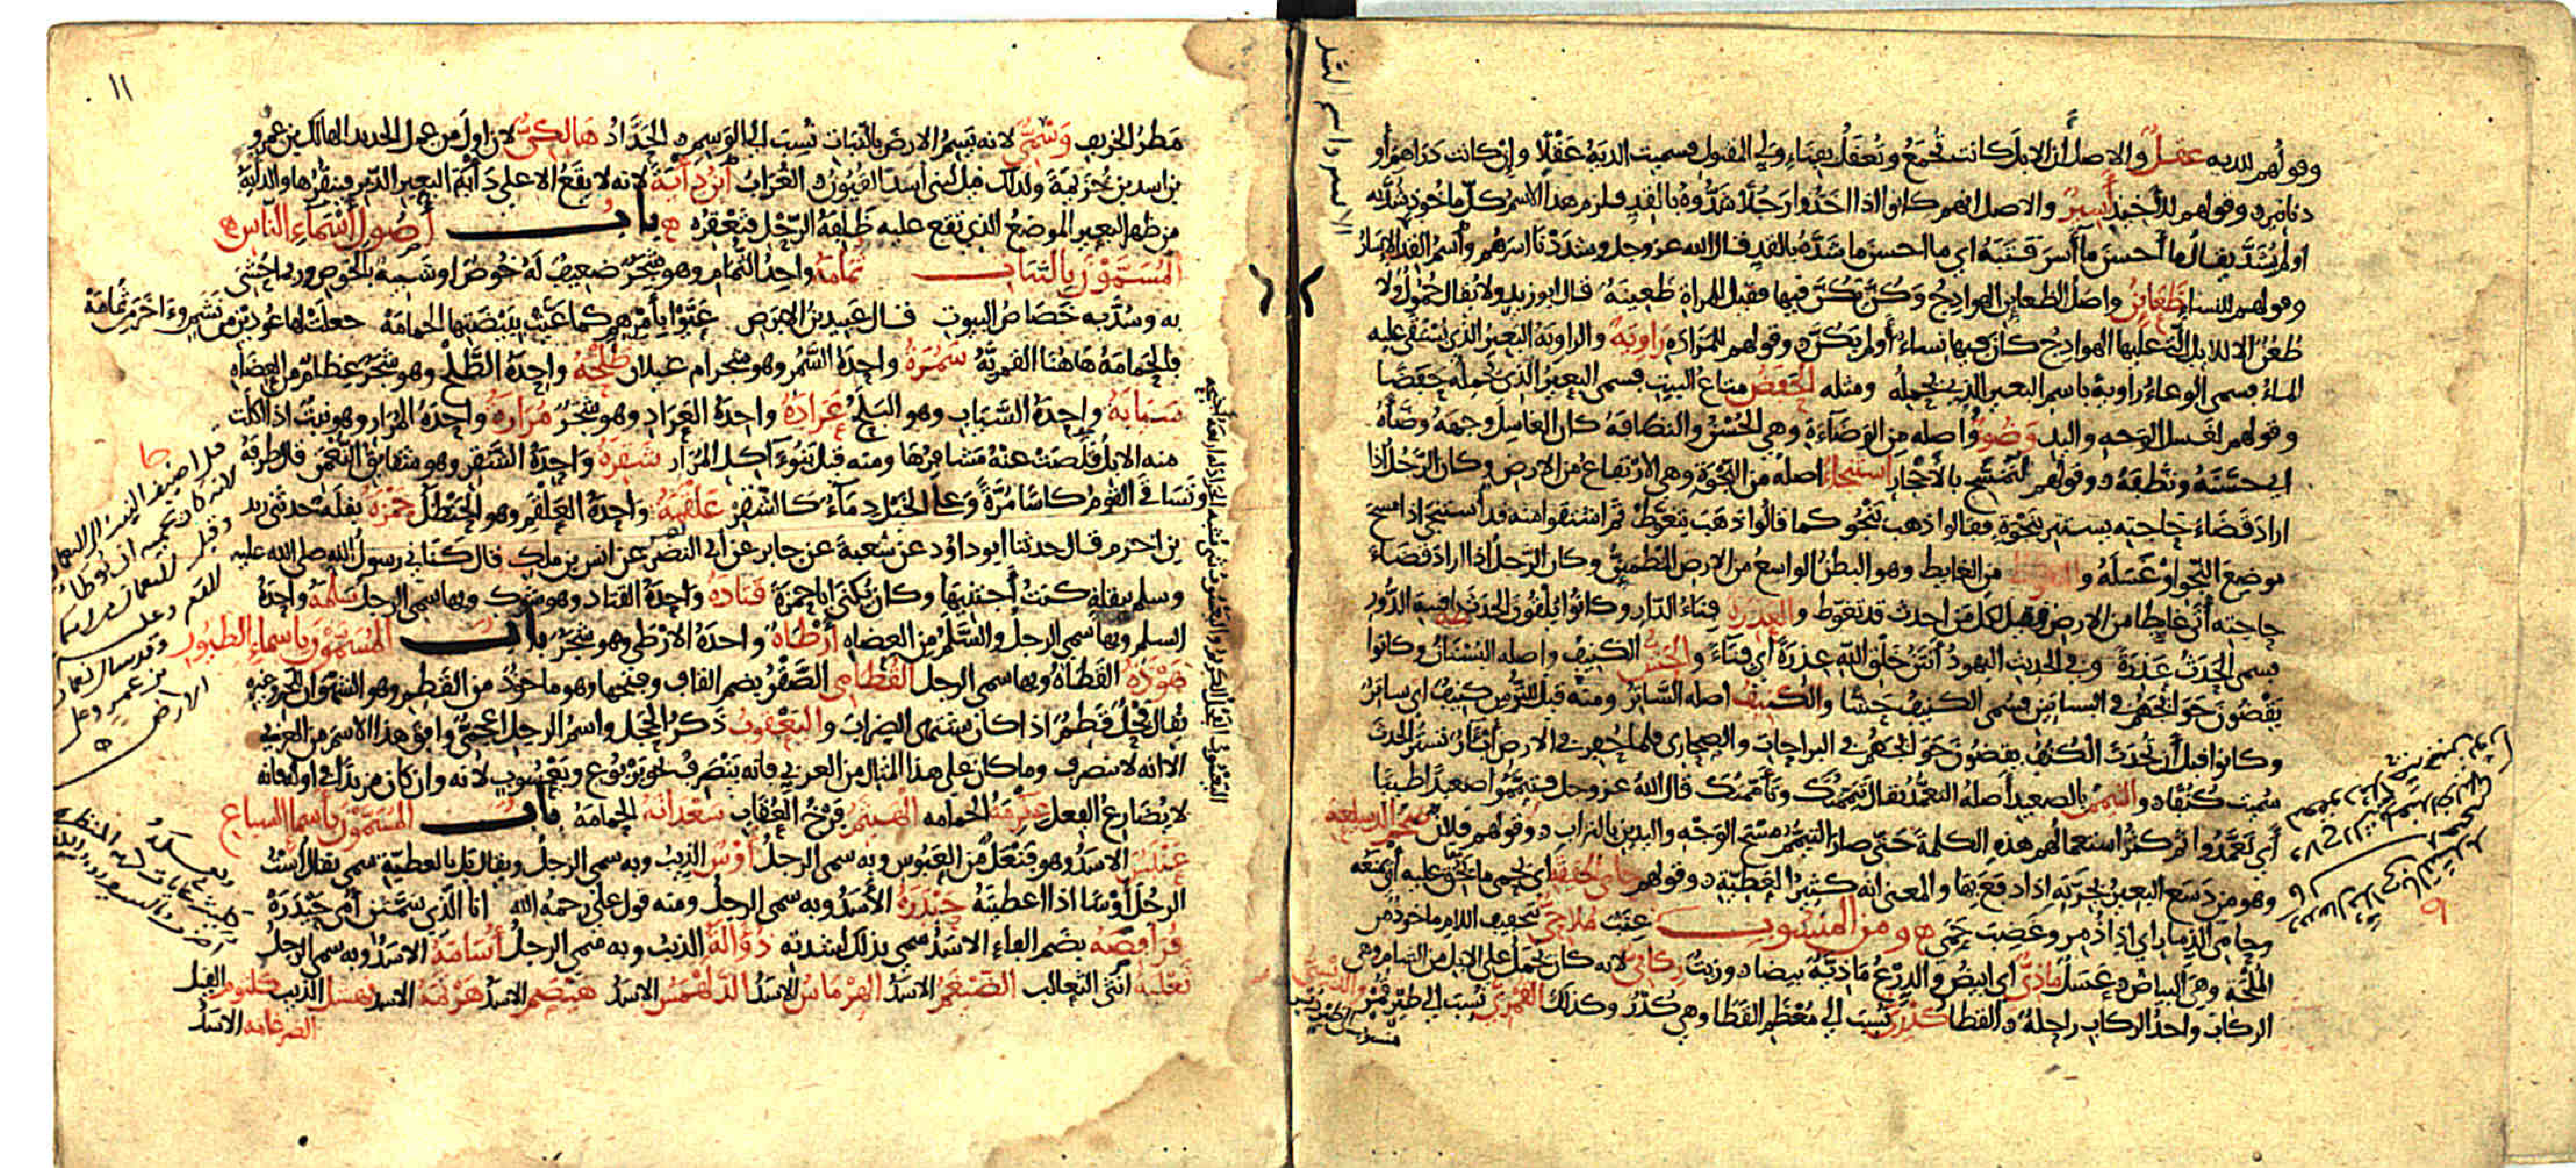 وقولهم للدية عقل والاصل أن الابل كانت تجمع وتعقل بفناء ولي المقتول فسميت الدية عقلا وإن كانت دراهم أو
دنانير وقولهم للأخيذ أسير والاصل انهم كانوا اذا اخذوا رجلا شدوه بالقد فلزم هذا الاسم كل ماخوذ شد به
او لم يشد يقال ما أحسن ما أسر قتبه اي ما احسن ما شده بالقد قال الله عز وجل وشددنا أسرهم واسم القد الإسار
وقولهم للنساء ظعاين واصل الظعاين الهوادج وكن يكن فيها فقيل للمراة ظعينة قال ابو زيد ولا يقال حمول ولا
ظعن الا للابل التي عليها الهوادج كان فيها نساء أو لم يكن وقولهم للمزادة راوية والراوية البعير الذي يستقى عليه
الماء فسمي الوعاء راوية باسم البعير الذي يحمله ومثله الحفض متاع البيت فسمي البعير الذي يحمله حفضا
وقولهم لغسل الوجه واليد وضوء واصله من الوضاءة وهي الحسن والنظافة كان الغاسل وجهه وضأه
اي حسنه ونظفه وقولهم للتمسح بالأحجار استنجاء اصله من النجوة وهي الارتفاع من الارض وكان الرجل اذا
اراد قضاء حاجته يستتر بنجوة فقالوا ذهب ينجو كما قالوا ذهب يتغوط ثم اشتقوا منه قد أستنجى اذا مسح
موضع النجو او غسله والتغوط من الغايط وهو البطن الواسع من الارض المطمئن وكان الرجل اذا اراد قضاء
حاجته أتى غايطا من الارض فقيل لكل من احدث قد تغوط والعذرة فناء الدار وكانوا يلقون الحدث بافنية الدور
فسمي الحدث عذرة وفي الحديث اليهود أنتن خلق الله عذرة أي فناء والحش الكنيف واصله البستان وكانوا
يقضون حوائجهم في البساتين فسمي الكنيف حشا والكنيف اصله الساتر ومنه قيل للترس كنيف اي ساتر
وكانوا قبل أن تحدث الكنف يقضون حوائجهم في البراحات والصحاري فلما حفر في الارض آبار تستر الحدث
سميت كنفا والتيمم بالصعيد أصله التعمد يقال تيممتك وتأممتك قال الله عز وجل فتيمموا صعيدا طيبا
أي تعمدوا ثم كثر استعمالهم هذه الكلمة حتى صار التيمم مسح الوجه واليدين بالتراب وقولهم فلان ضخم الدسيعة
وهو من دسع البعير بجرته اذا دفع بها والمعنى انه كثير العطية وقولهم حامي الحقيقة اي يحمي ما يحق عليه أن يمنعه
وحامي الذمار اي اذا ذمر وغضب حمي ومن المنسوب عنب ملاحي بتخفيف اللام ماخوذ من
الملحة وهي البياض وعسل ماذي أي ابيض والدرع ماذية بيضاء وزيت ركابي لانه كان يحمل على الابل من الشام وهي
الركاب واحد الركاب راحلة والقطا كدري نسب الى معظم القطا وهي كدر وكذلك القمري نسب الى طير قمر والدبسي
١١
مطر الخريف وسمي لانه يسم الارض بالنبات نسب الى الوسم والحداد هالكي لان اول من عمل الحديد الهالك بن عمرو
بن اسد بن خزيمة ولذلك قيل لبني أسد القيون والغراب ابن دأية لانه لا يقع الا على دأية البعير الدبر فينقرها والدأية
من ظهر البعير الموضع الذي تقع عليه ظلفة الرحل فتعقره باب أصول أسماء الناس
المسمون بالنبات ثمامة واحد الثمام وهو شجر ضعيف له خوص او شبيه بالخوص وربما حشي
به وسد به خصاص البيوت قال عبيد بن الابرص عيوا بأمرهم كما عيت ببيضتها الحمامة جعلت لها عودين من نشم وءاخر من ثمامة
فالحمامة هاهنا القمرية سمرة واحدة السمر وهو شجر ام غيلان طلحة واحدة الطلح وهو شجر عظام من العضاه
سيابة واحدة السياب وهو البلح عرادة واحدة العراد وهو شجر مرارة واحدة المرار وهو نبت اذا اكلت
منه الابل قلصت عنه مشافرها ومنه قيل بنو آكل المرار شقرة واحدة الشقر وهو شقايق النعمن قال طرفة
وتساقى القوم كاسا مرة وعلا الخيل دماء كالشقر علقمة واحدة العلقم وهو الحنظل حمزة بقلة حدثني زيد
بن اخزم قال حدثنا ابو داود عن شعبة عن جابر عن ابي النضر عن انس بن ملك قال كناني رسول الله صلى الله عليه
وسلم ببقلة كنت أجتنيها وكان يكنى ابا حمزة قتادة واحدة القتاد وهو شوك وبها سمي الرجل سلمة واحدة
السلم وبها سمي الرجل والسلم من العضاه أرطاة واحدة الارطى وهو شجر باب المسمون باسماء الطيور
هوذة القطاة وبها سمي الرجل القطامي الصقر بضم القاف وفتحها وهو ماخوذ من القطم وهو الشهوان للحم وغيره
يقال فحل قطم اذا كان يشتهي الضراب واليعقوب ذكر الحجل واسم الرجل اعجمي وافق هذا الاسم من العربي
الا انه لا ينصرف وما كان على هذا المثال من العربي فانه ينصرف نحو يربوع ويعسوب لانه وان كان مزيدا في اوله فانه
لا يضارع الفعل عكرمة الحمامه الهيثم فرخ العقاب سعدانة الحمامة باب المسمون بأسماء السباع
عنبس الاسد وهو فنعل من العبوس وبه سمي الرجل أوس الذيب وبه سمي الرجل ويقال بل بالعطية سمي يقال أست
الرجل أوسا اذا اعطيته حيدرة الأسد وبه سمي الرجل ومنه قول علي رحمه الله انا الذي سمتن أمي حيدرة
فرافصة بضم الفاء الاسد سمي بذلك لشدته ذؤالة الذيب وبه سمي الرجل أسامة الاسد وبه سمي الرجل
ثعلبة انثى الثعالب الضيغم الاسد الهرماس الاسد الدلهمس الاسد هيصم الاسد هرثمة الاسد نهشل الذيب كلثوم الفيل
الضرغامه الاسد